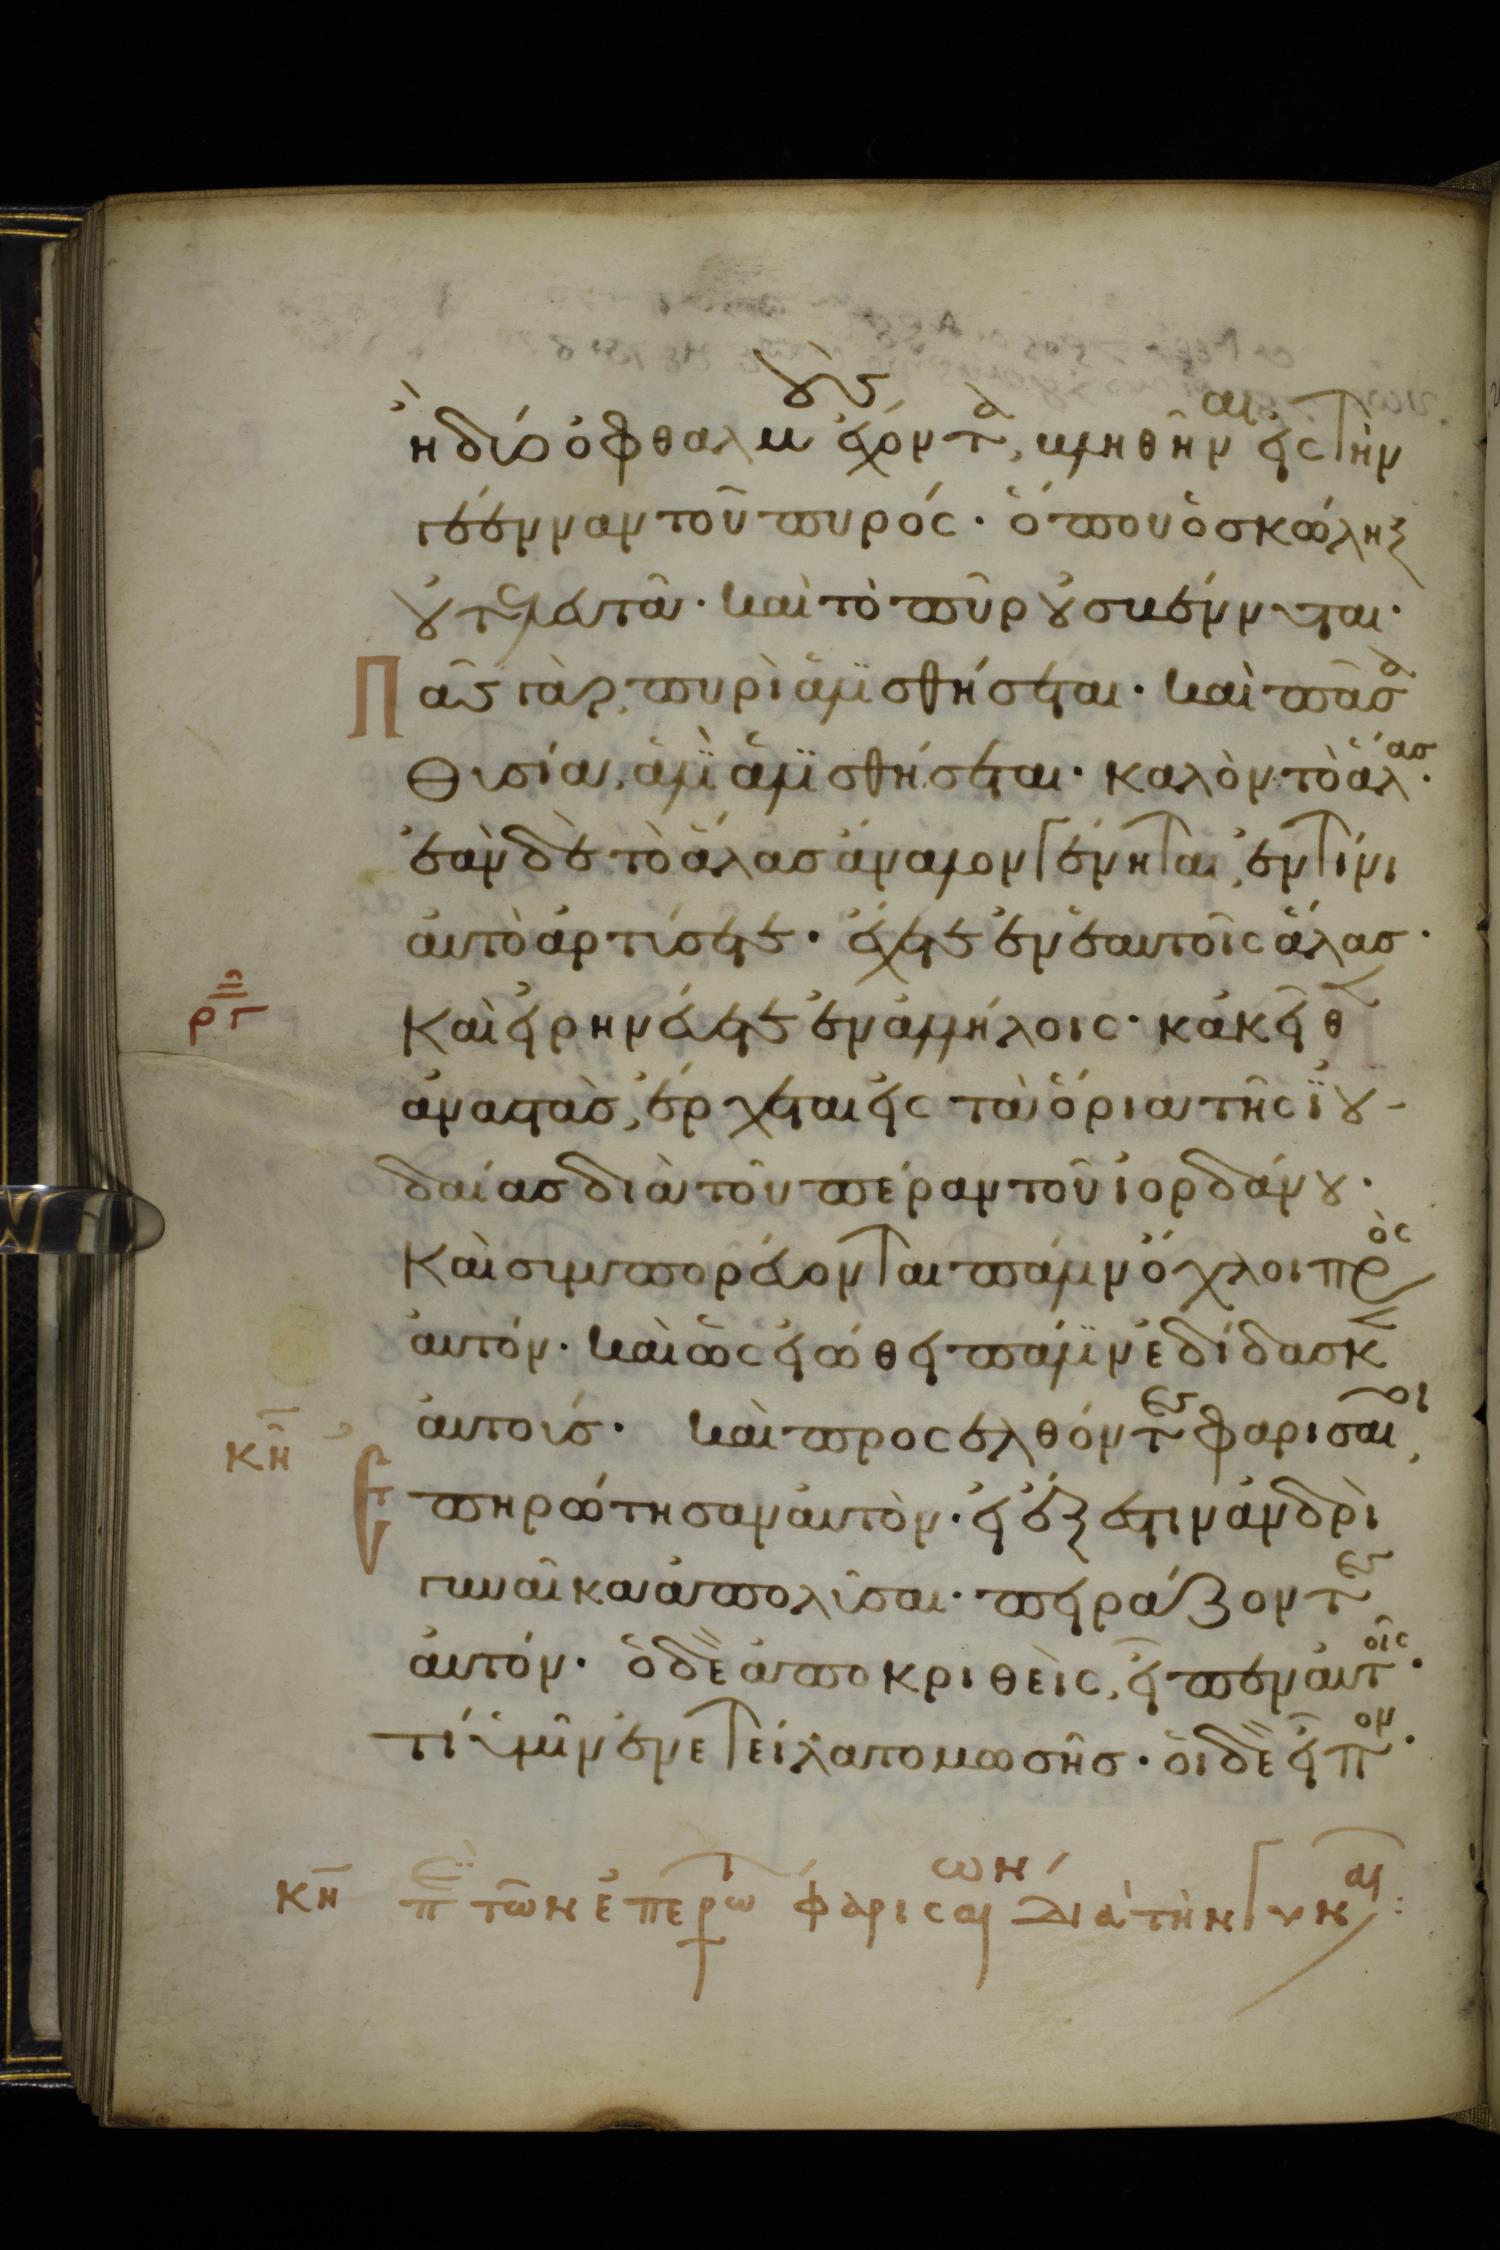 ἢ δύο ὀφθαλμοὺς ἔχοντα, βληθῆναι εἰς τὴν
γέενναν τοῦ πυρός· ὅπου ὁ σκώληξ
οὐ τελευτᾶ· καὶ τὸ πῦρ οὐ σβέννυται·
Πᾶς γὰρ, πυρὶ ἁλϊσθήσεται· καὶ πᾶσα
θυσία, ἁλῒ ἁλϊσθήσεται· καλὸν τὸ ἅλας·
ἐὰν δὲ τὸ ἅλας ἄναλον γένηται, ἐν τίνι
αὐτὸ ἀρτύσετε· ἔχετε ἐν ἑαυτοῖς ἅλας·
ργ
Καὶ εἰρηνεύετε ἐν ἀλλήλοις· κἀκεῖθεν
ἀναστὰς, ἔρχεται εἰς τὰ ὅρια τῆς ϊου-
δαίας διὰ τοῦ πέραν τοῦ ἰορδάνου·
Καὶ συμπορεύονται πάλιν ὄχλοι πρὸς
αὐτόν· καὶ ὡς εἰώθει πάλϊν ἐδίδασκεν
αὐτούς· καὶ προσελθόντες φαρισαῖοι,
κη
Ἐπηρώτησαν αὐτὸν· εἰ ἔξεστιν ἀνδρὶ
γυναῖκα ἀπολῦσαι· πειράζοντες
αὐτόν· ὁ δὲ ἀποκριθεὶς, εἶπεν αὐτοῖς·
τί ὑμῖν ἐνετείλατο μωσῆς· οἱ δὲ εἶπον·
κη π τῶν ἐπερω φαρισαίων διὰ τὴν γυναι: